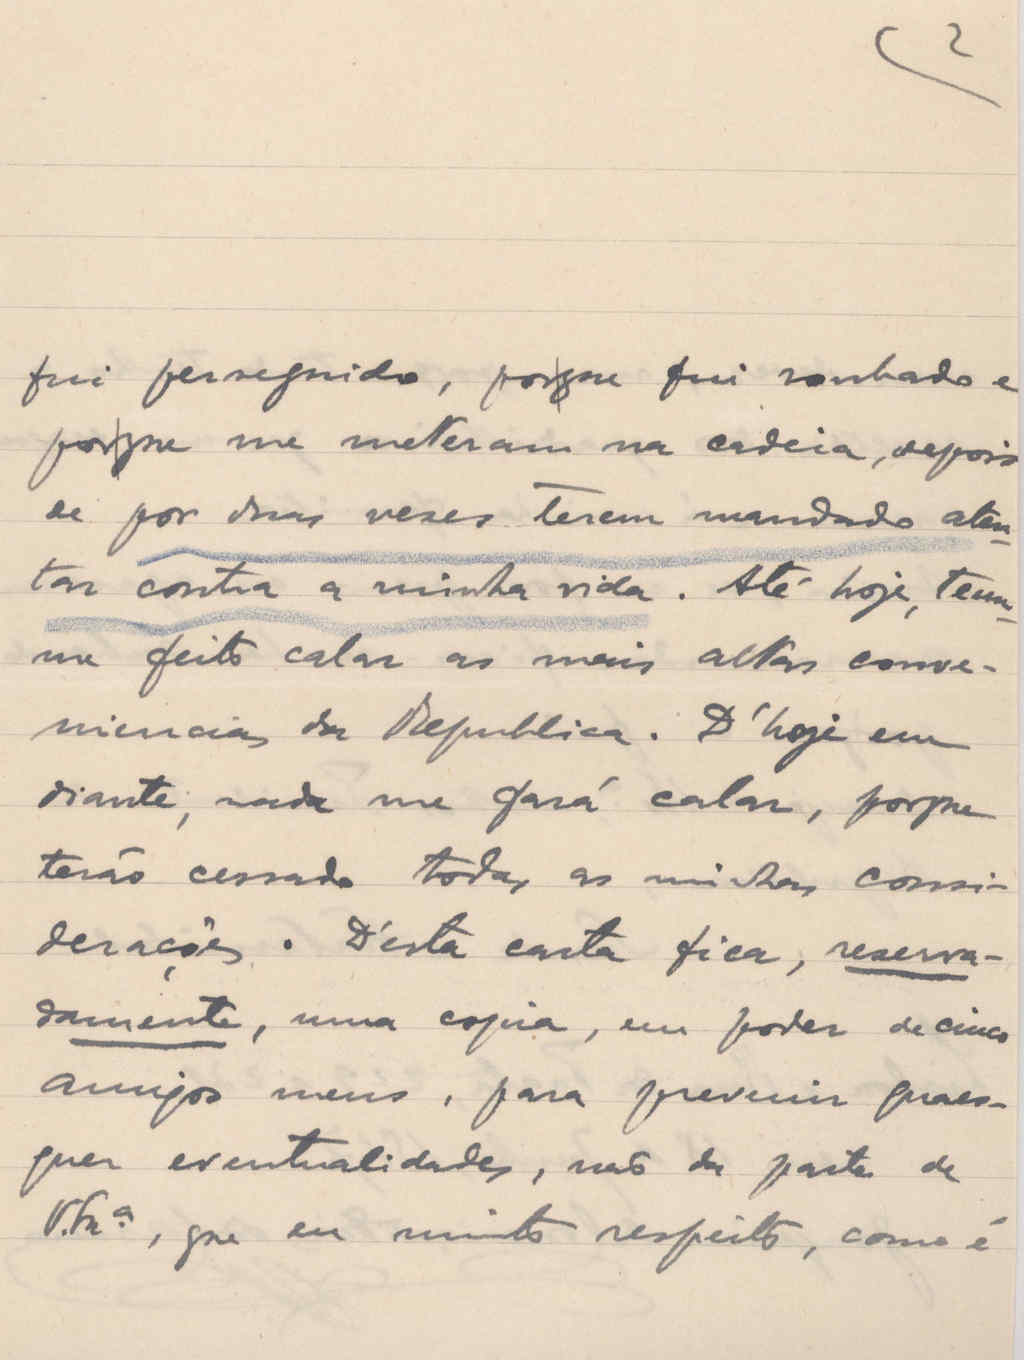 2
fui perseguido, porque fui roubado e
porque me meteram na cadeia, depois
de por duas vezes terem mandado aten-
tar contra a minha vida. Até hoje, tem-
me feito calar as mais altas conve-
niencias da Republica. D'hoje em
diante, nada me fará calar, porque
terão cessado todas as minhas consi-
derações. D'esta carta fica, reserva-
damente, uma copia, em poder de cinco
amigos meus, para prevenir quaes-
quer eventualidades, não da parte de
V. Ex.ª, que eu muito respeito, como é